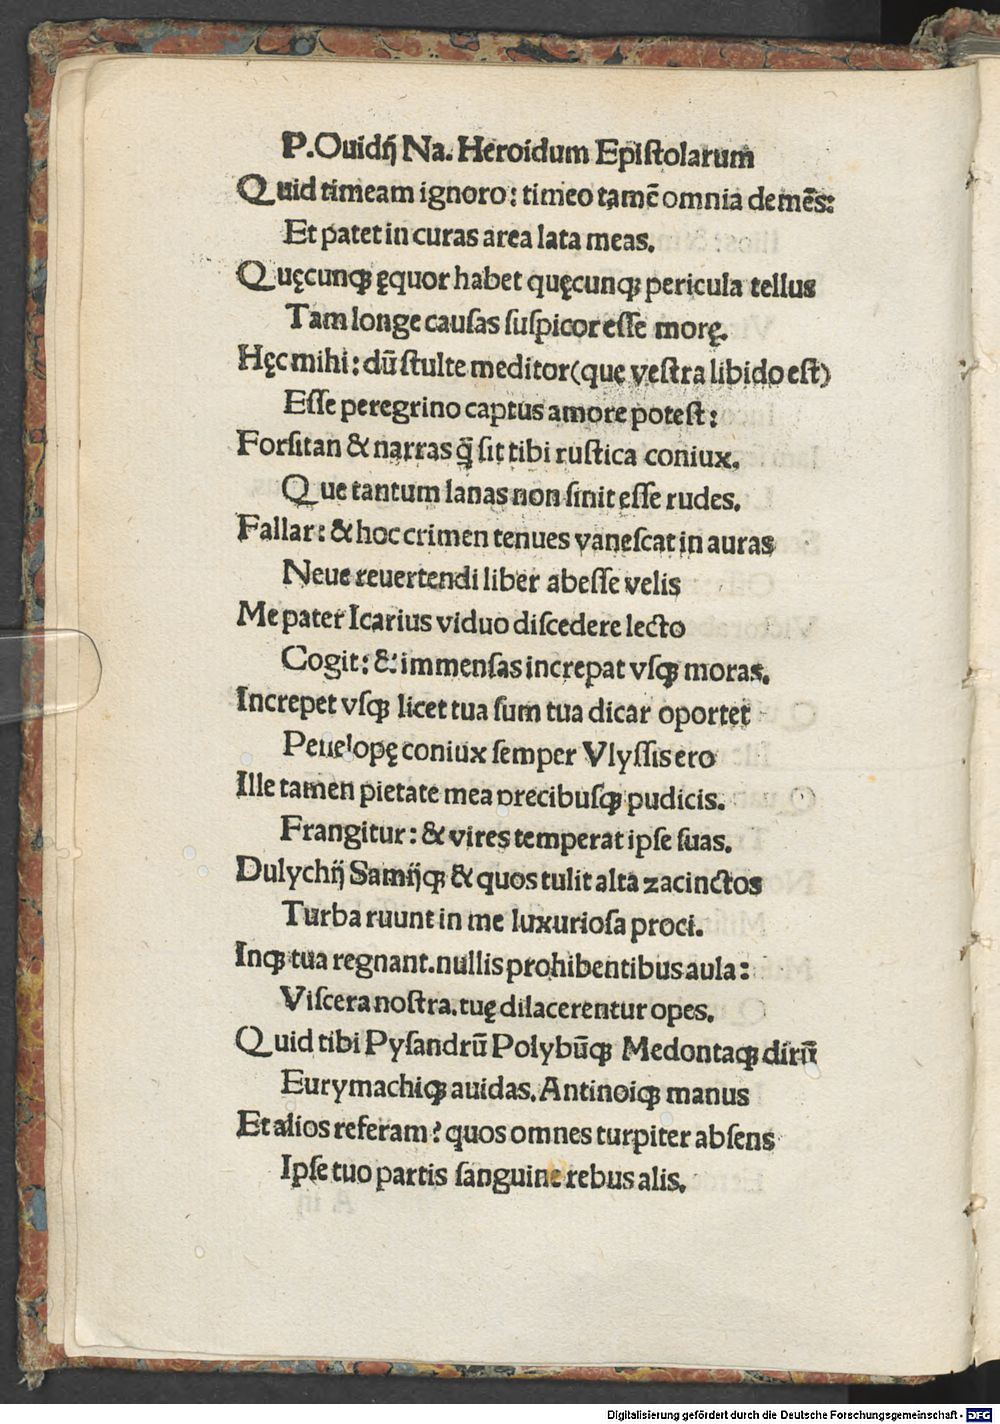 P. Ouidij̄ Na. Heroidum Epiſtolarum
Quid timeam ignoro: timeo tamē omnia demēs:
Et patet in curas area lata meas.
Quęcunqꝫ ęquor habet quęcunqꝫ pericula tellus
Tam longe cauſas ſuſpicor eſſe morę.
Hęc mihi: dū ſtulte meditor (que veſtra libido eſt)
Eſſe peregrino captus amore poteſt:
Forſitan & narras q̄ ſit tibi ruſtica coniux.
Que tantum lanas non ſinit eſſe rudes.
Fallar: & hoc crimen tenues vaneſcat in auras
Neue reuertendi liber abeſſe velis
Me pater Icarius viduo diſcedere lecto
Cogit: & immenſas increpat vſqꝫ moras.
Increpet vſqꝫ licet tua ſum tua dicar oportet
Penelopę coniux ſemper Vlyſſis ero
Ille tamen pietate mea precibuſqꝫ pudicis.
Frangitur: & vires temperat ipſe ſuas.
Dulychij Samijqꝫ & quos tulit alta zacinctos
Turba ruunt in me luxurioſa proci.
Inqꝫ tua regnant. nullis prohibentibus aula:
Viſcera noſtra. tuę dilacerentur opes.
Quid tibi Pyſandrū Polybūqꝫ Medontaqꝫ dirū
Eurymachiqꝫ auidas. Antinoiqꝫ manus
Et alios referam? quos omnes turpiter abſens
Ipſe tuo partis ſanguine rebus alis.
Digitalisierung gefördert durch die Deutsche Forschungsgemeinschaft - DFG